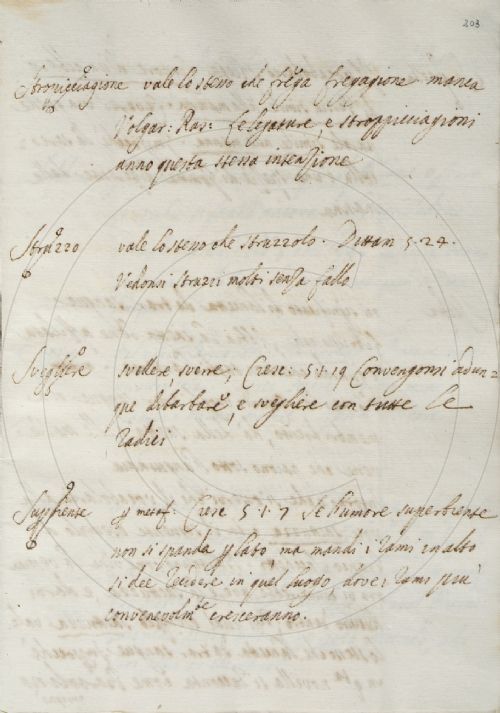 203
Stropicciagione vale lo stesso che frega fregagione manca
Volgar: Ras: Le legature, e stroppicciagioni
anno questa stessa intenzione
Struzzo vale lo stesso che struzzolo. Dittam 5. 24.
Vedonsi struzzi molti senza fallo
Svegliere svellere, sverre; Cresc: 5. 19 Convengonsi adun=
que dibarbare, e svegliere con tutte le
radici
p metaf. Cresc 5. 1. 7 Se l'umore superbiente
non si spanda p lato, ma mandi i rami in alto
si dee recidere in quel luogo, dove i rami più
convenevolmte cresceranno.